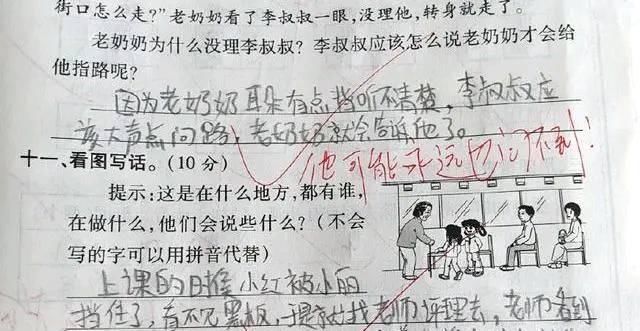 街口怎么走?”老奶奶看了李叔叔一眼,没理他,转身就走了。
老奶奶为什么没理李叔叔?李叔叔应该怎么说老奶奶才会给
他指路呢?
因为老奶奶耳朵有点背听不清楚,李叔叔应
该大声点问路,老奶奶就会告诉他了。
他可能永远也问不到!
十一、看图写话。(10分)
提示:这是在什么地方,都有谁,
在做什么,他们会说些什么?(不会
写的字可以用拼音代替)
上课的时候小红被小丽
挡住了,看不见黑板,于是 找老师评理去,老师看到